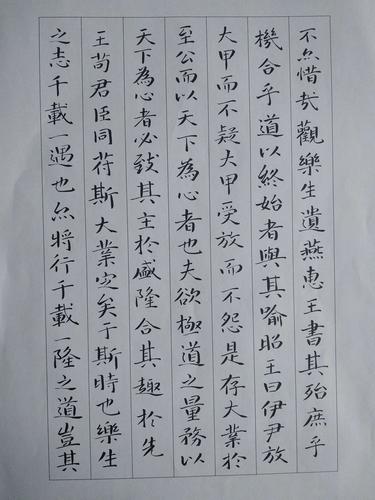 不亦惜哉觀樂生遺燕惠王書其殆庶乎
機合乎道以終始者與其喻昭王曰伊尹放
大甲而不疑大甲受放而不怨是存大業於
至公而以天下為心者也夫欲極道之量務以
天下為心者必致其主於盛隆合其趣於先
王苟君臣同苻斯大業定矣于斯時也樂生
之志千載一遇也亦將行千載一隆之道豈其